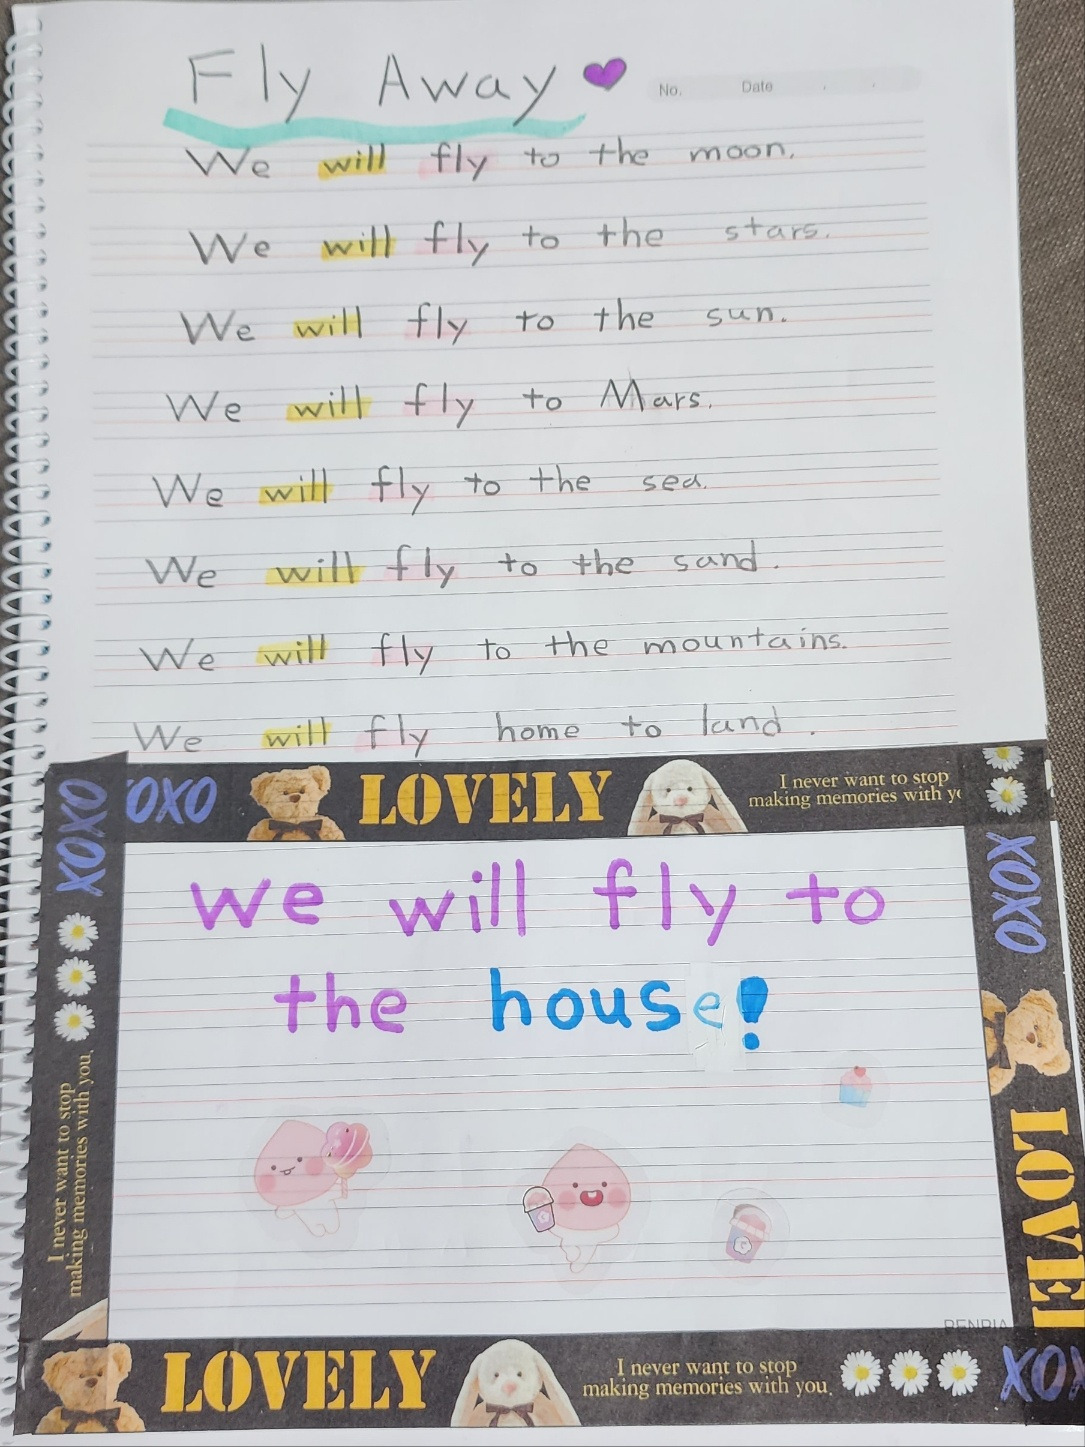 Fly Away
No. Date
We will fly to the moon.
We will fly to the stars.
We will fly to the sun.
We will fly to Mars.
We will fly to the sea.
We will fly to the sand.
We will fly to the mountains.
We will fly home to land.
XOXO
OXO
LOVELY
I never want to stop
making memories with
we will fly to
the house!
I never want to stop
making memories with you.
XOXO
LOVEL
LOVELY
I never want to stop
making memories with you.
XO